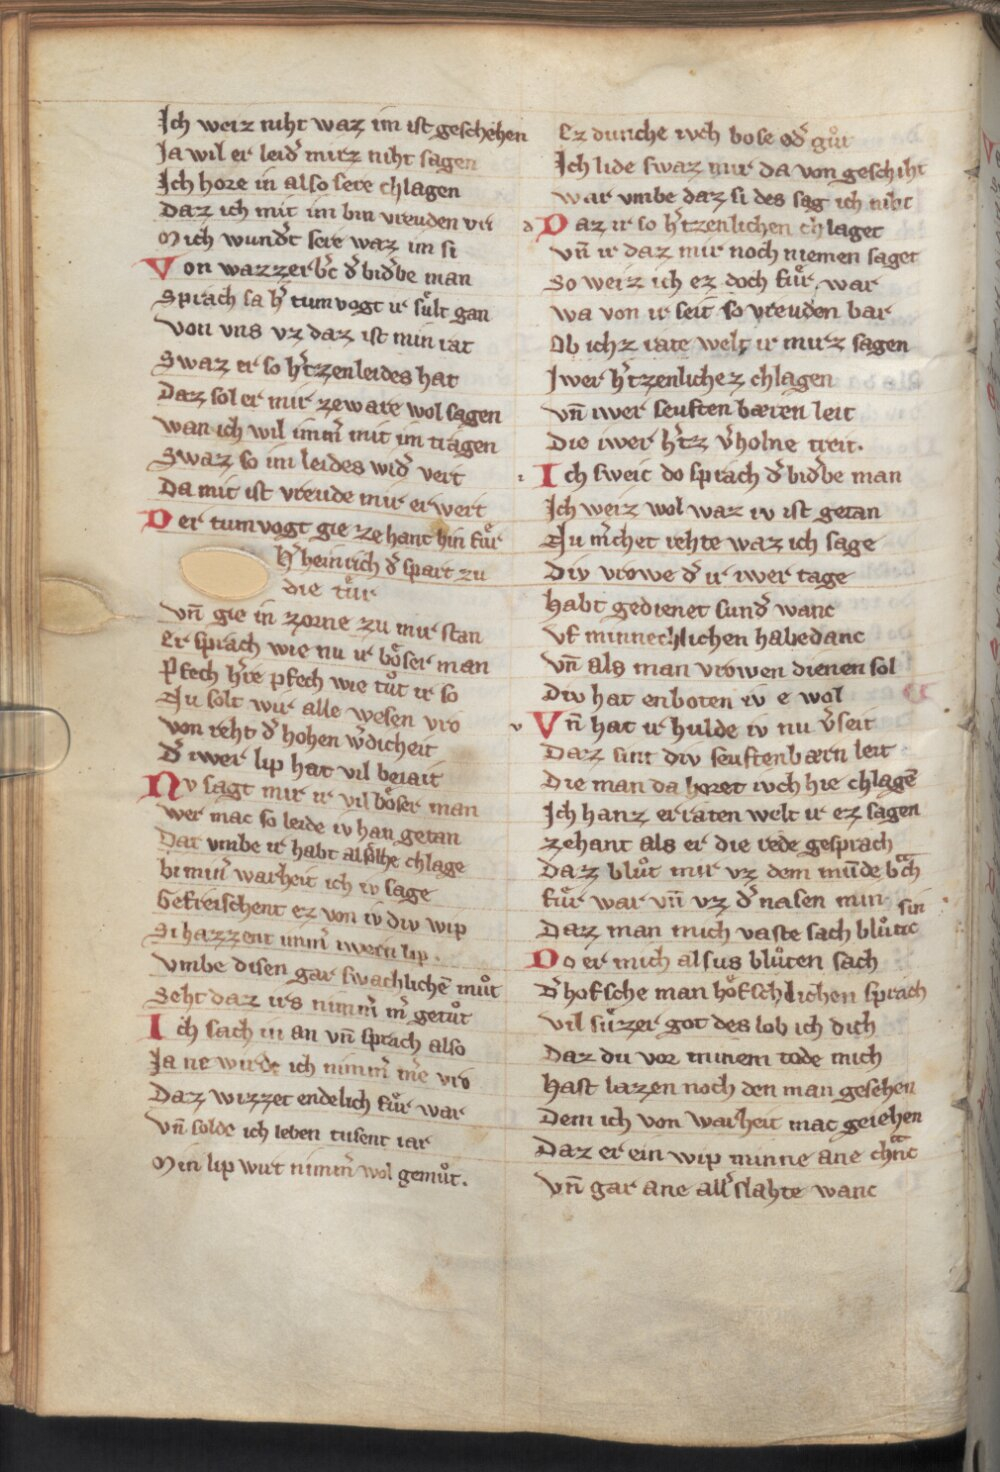 Ich weiz niht waz im ist geschehen
Ja wil er leid᷑ mirz niht sagen
Ich hore in also sere chlagen
Daz ich mit im bin vreuden vri
Mich wund᷑t sere waz im si
Von wazzerb᷑c d᷑ bid᷑be man
Sprach sa h᷑ tumvogt ir sult gan
Von vns vz daz ist min rat
Swaz er so h᷑tzenleides hat
Daz sol er mir zeware wol sagen
wan ich wil im̄m᷑ mit im tragen
Swaz so im leides wid᷑ vert
Da mit ist vreude mir erwert
Der tumvogt gie ze hant hin fuͤr
h᷑ heinrich d᷑ spart zu
die tuͤr
Vn̄ gie in zorne zu mir stan
Er sprach wie nu ir boͤser man
Pfech h᷑re pfech wie tuͦt ir so
Ju solt wir alle wesen vro
von reht d᷑ hohen w᷑dicheit
D᷑ iwer lip hat vil beiait
Nv sagt mir ir vil boͤser man
wer mac so leide iv han getan
Dar vmbe ir habt alsoͤlhe chlage
bi min᷑ warheit ich iv sage
Gefreischent ez von iv div wip
Si hazzent im̄m᷑ iwern lip.
Vmbe disen gar swachlichē muͦt
Seht daz irs nim̄m᷑ m᷑ getuͦt
Ich sach in an vn̄ sprach also
Ja ne wirde ich nim̄m᷑ m᷑e vro
Daz wizzet endelich fuͤr war
Vn̄ solde ich leben tusent iar
Min lip wirt nim̄m᷑ wol gemuͦt.
Ez dunche ivch bose od᷑ guͦt
Ich lide swaz mir da von geschiht
war vmbe daz si des sag ich niht
Daz ir so h᷑tzenlichen chlaget
Vn̄ ir daz mir noch niemen saget
So weiz ich ez doch fuͤr war
wa von ir seit so vreuden bar
Ob ichz rate welt ir mirz sagen
Iwer h᷑tzenlichez chlagen
Vn̄ iwer seuftenbæren leit
Die iwer h᷑tz v᷑holne treit.
Ich sweic do sprach d᷑ bid᷑be man
Ich weiz wol waz iv ist getan
Nu m᷑chet rehte waz ich sage
Div vrowe d᷑ ir iwer tage
habt gedienet sund᷑ wanc
Vf minnechlichen habedanc
Vn̄ als man vrowen dienen sol
Div hat enboten iv e wol
Vn̄ hat ir hulde iv nu v᷑seit
Daz sint div seuftenbærn leit
Die man da horet ivch hie chlagē
Ich hanz erraten welt ir ez sagen
zehant als er die rede gesprach
Daz bluͦt mir vz dem mūde brach
fuͤr war vn̄ vz d᷑ nasen min
Daz man mich vaste sach bluͦtic sin
Do er mich alsus bluͦten sach
D᷑ hofsche man hoͤfschlichen sprach
Vil suͤzer got des lob ich dich
Daz du vor minem tode mich
Hast lazen noch den man gesehen
Dem ich von warheit mac geiehen
Daz er ein wip minne ane chranc
Vn̄ gar ane all᷑ slahte wanc